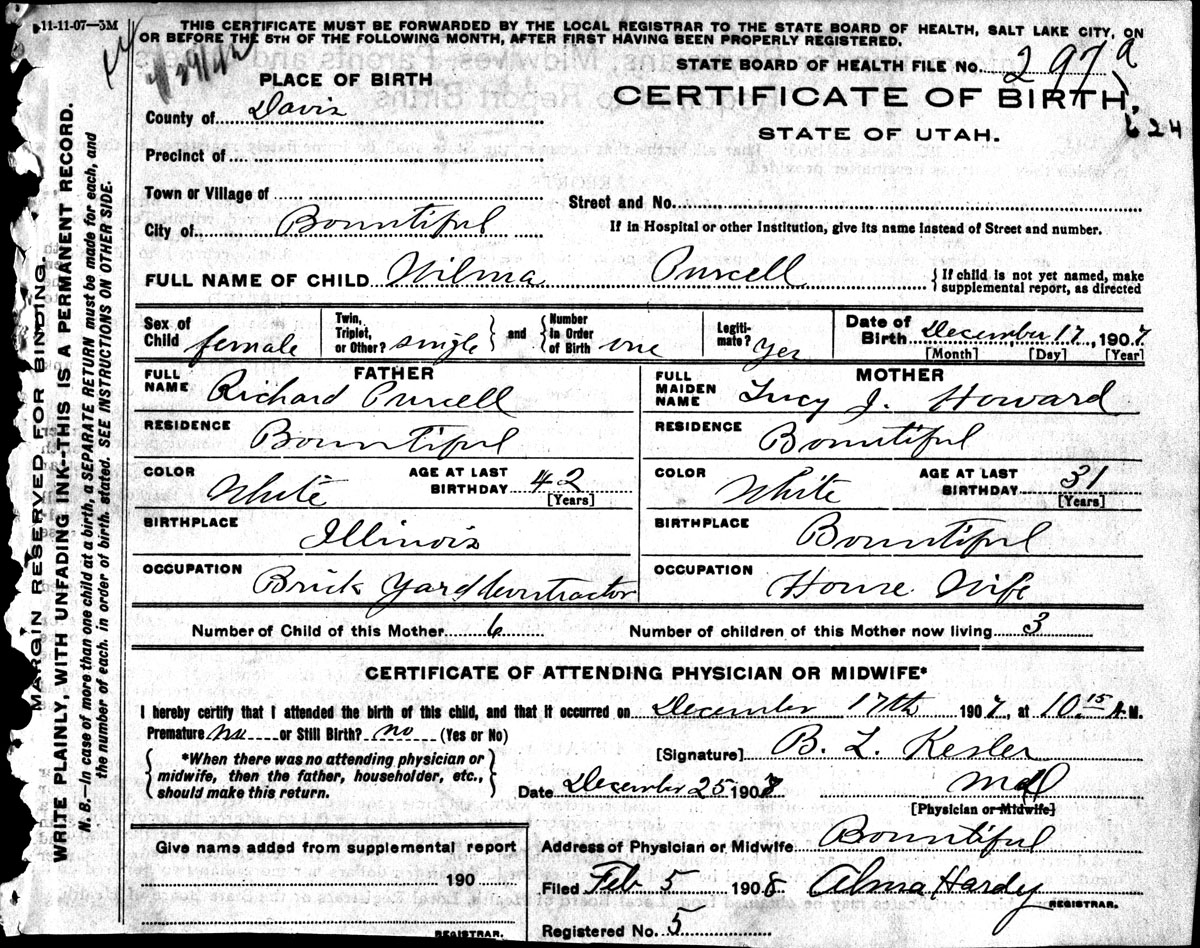 11-11-07—3M
THIS CERTIFICATE MUST BE FORWARDED BY THE LOCAL REGISTRAR TO THE STATE BOARD OF HEALTH, SALT LAKE CITY, ON
OR BEFORE THE 5TH OF THE FOLLOWING MONTH, AFTER FIRST HAVING BEEN PROPERLY REGISTERED.
MARGIN RESERVED FOR BINDING.
WRITE PLAINLY, WITH UNFADING INK--THIS IS A PERMANENT RECORD.
N. B.—In case of more than one child at a birth, a SEPARATE RETURN must be made for each, and
the number of each, in order of birth, stated. SEE INSTRUCTIONS ON OTHER SIDE.
PLACE OF BIRTH
County of Davis
Precinct of
Town or Village of
City of Bountiful
STATE BOARD OF HEALTH FILE No. 297 a
CERTIFICATE OF BIRTH,
624
STATE OF UTAH.
Street and No.
If in Hospital or other Institution, give its name instead of Street and number.
FULL NAME OF CHILD Wilma Purcell { If child is not yet named, make
supplemental report, as directed
Sex of Child female
Twin, Triplet, or Other? single } and { Number in Order of Birth one
Legiti- mate? yes
Date of Birth December 17, 1907
[Month] [Day] [Year]
FATHER
FULL NAME Richard Purcell
RESIDENCE Bountiful
COLOR White AGE AT LAST BIRTHDAY 42 [Years]
BIRTHPLACE Illinois
OCCUPATION Brick Yard Contractor
MOTHER
FULL MAIDEN NAME Lucy J. Howard
RESIDENCE Bountiful
COLOR White AGE AT LAST BIRTHDAY 31 [Years]
BIRTHPLACE Bountiful
OCCUPATION House Wife
Number of Child of this Mother 6 Number of children of this Mother now living 3
CERTIFICATE OF ATTENDING PHYSICIAN OR MIDWIFE*
I hereby certify that I attended the birth of this child, and that it occurred on December 17th 1907, at 10 15 A.M.
Premature no or Still Birth? no (Yes or No)
{ *When there was no attending physician or
midwife, then the father, householder, etc.,
should make this return. }
[Signature] B. L. Kesler
Date December 25 1907 MD
[Physician or Midwife]
Address of Physician or Midwife Bountiful
Filed Feb 5 1908 Alma Hardy
REGISTRAR.
Registered No. 5
Give name added from supplemental report
190
REGISTRAR.